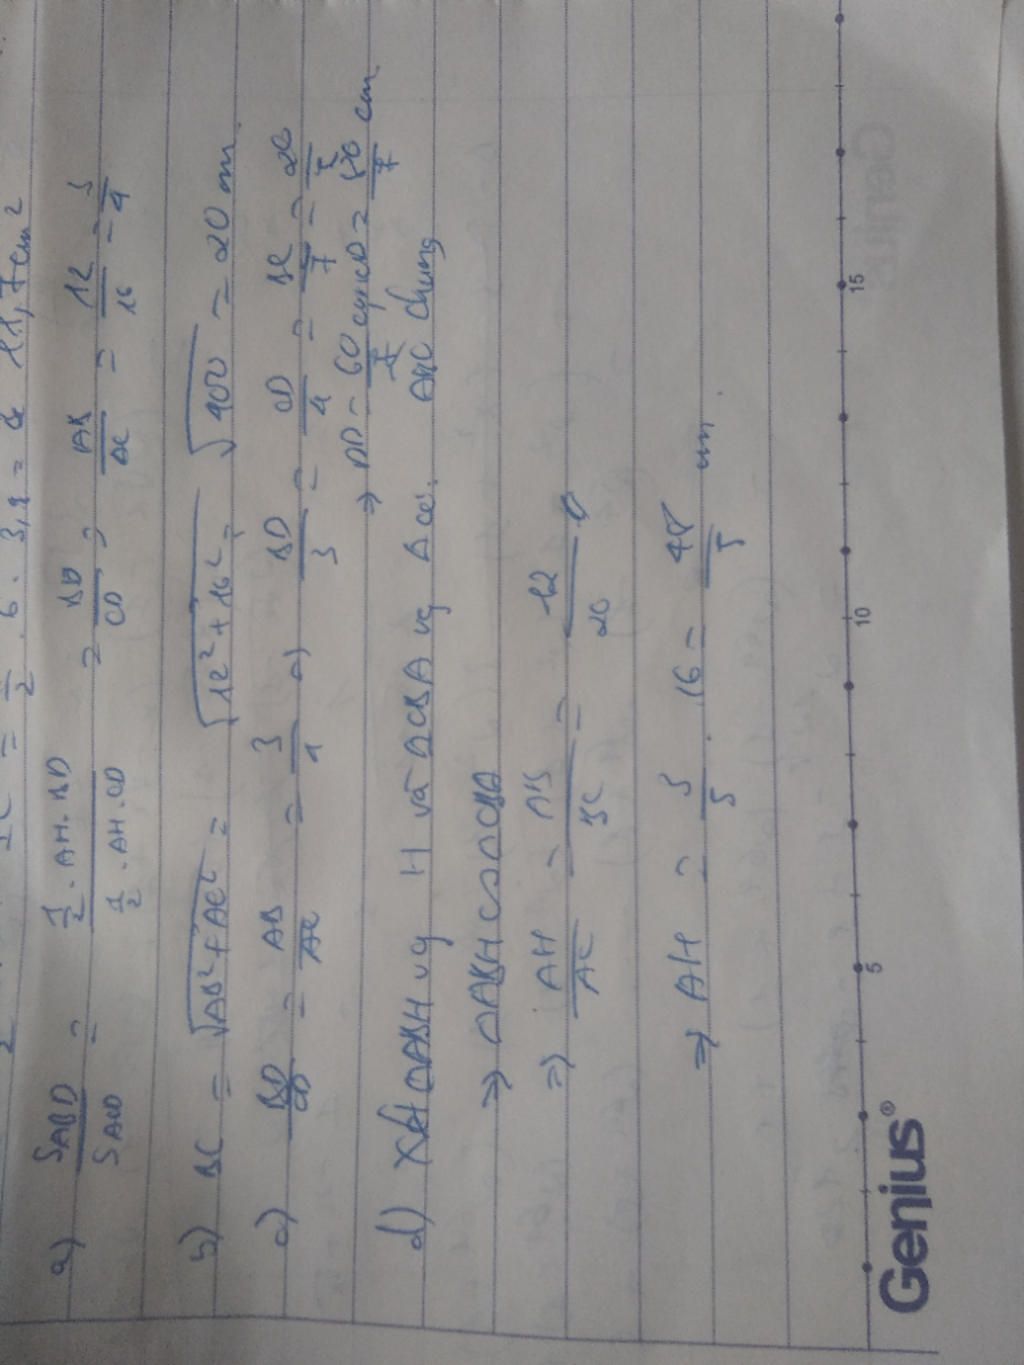 = 1/2 . 6 . 3,9 = 11,7 cm²
a) S_ABD / S_ACD = (1/2 . AH . BD) / (1/2 . AH . CD) = BD/CD = AB/AC = 12/16 = 3/4
b) BC = √(AB² + AC²) = √(12² + 16²) = √400 = 20 cm
c) BD/CD = AB/AC = 3/4 => BD/3 = CD/4 = BC/7 = 20/7
=> BD = 60/7 cm CD = 80/7 cm
d) Xét ΔABH vg H và ΔCBA vg A có. ABC chung
=> ΔABH ∽ ΔCBA
=> AH/AC = AB/BC = 12/20
=> AH = 3/5 . 16 = 48/5 cm
5 10 15
Genius®